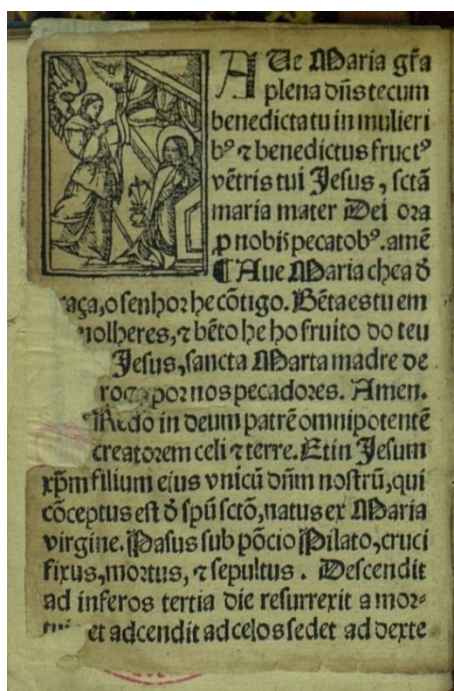 AUe Maria gr̃a
plena dñs tecum
benedicta tu in mulieri
bꝰ ⁊ benedictus fructꝰ
vẽtris tui Jesus, sctã
maria mater Dei ora
ꝓ nobis pecatobꝰ. amẽ
¶ Aue Maria chea ď
raça, o senhor he cõtigo. Bẽta es tu em
molheres, ⁊ bẽto he ho fruito do teu
Jesus, sancta Marta madre de
roga por nos pecadores. Amen.
do in deum patrẽ omnipotentẽ
creatorem celi ⁊ terre. Et in Jesum
xp̃m filium eius vnicũ dñm nostrũ, qui
cõceptus est ď spũ sctõ, natus ex Maria
virgine. Pasus sub põcio Pilato, cruci
fixus, mortus, ⁊ sepultus. Descendit
ad inferos tertia die resurrexit a mor-
et adcendit ad celos sedet ad dexte